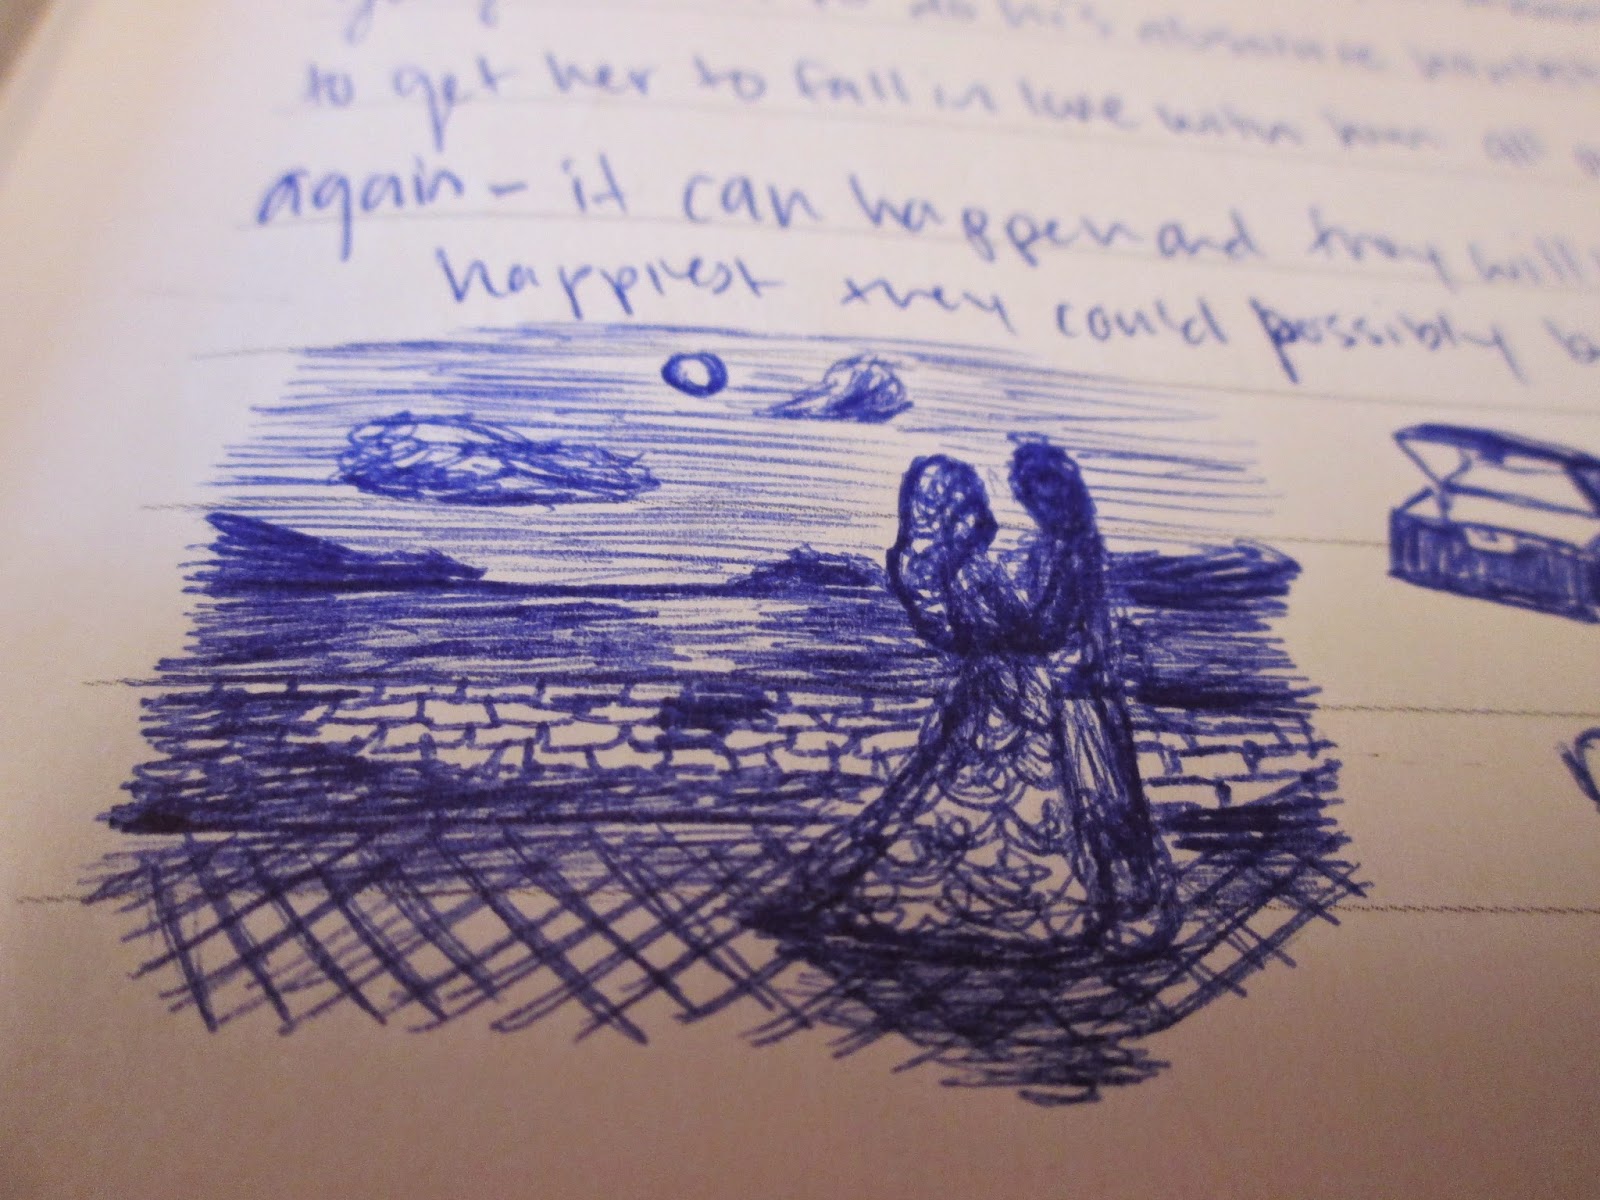 to do his absolute
to get her to fall in love with him all
again - it can happen and they will
happiest they could possibly